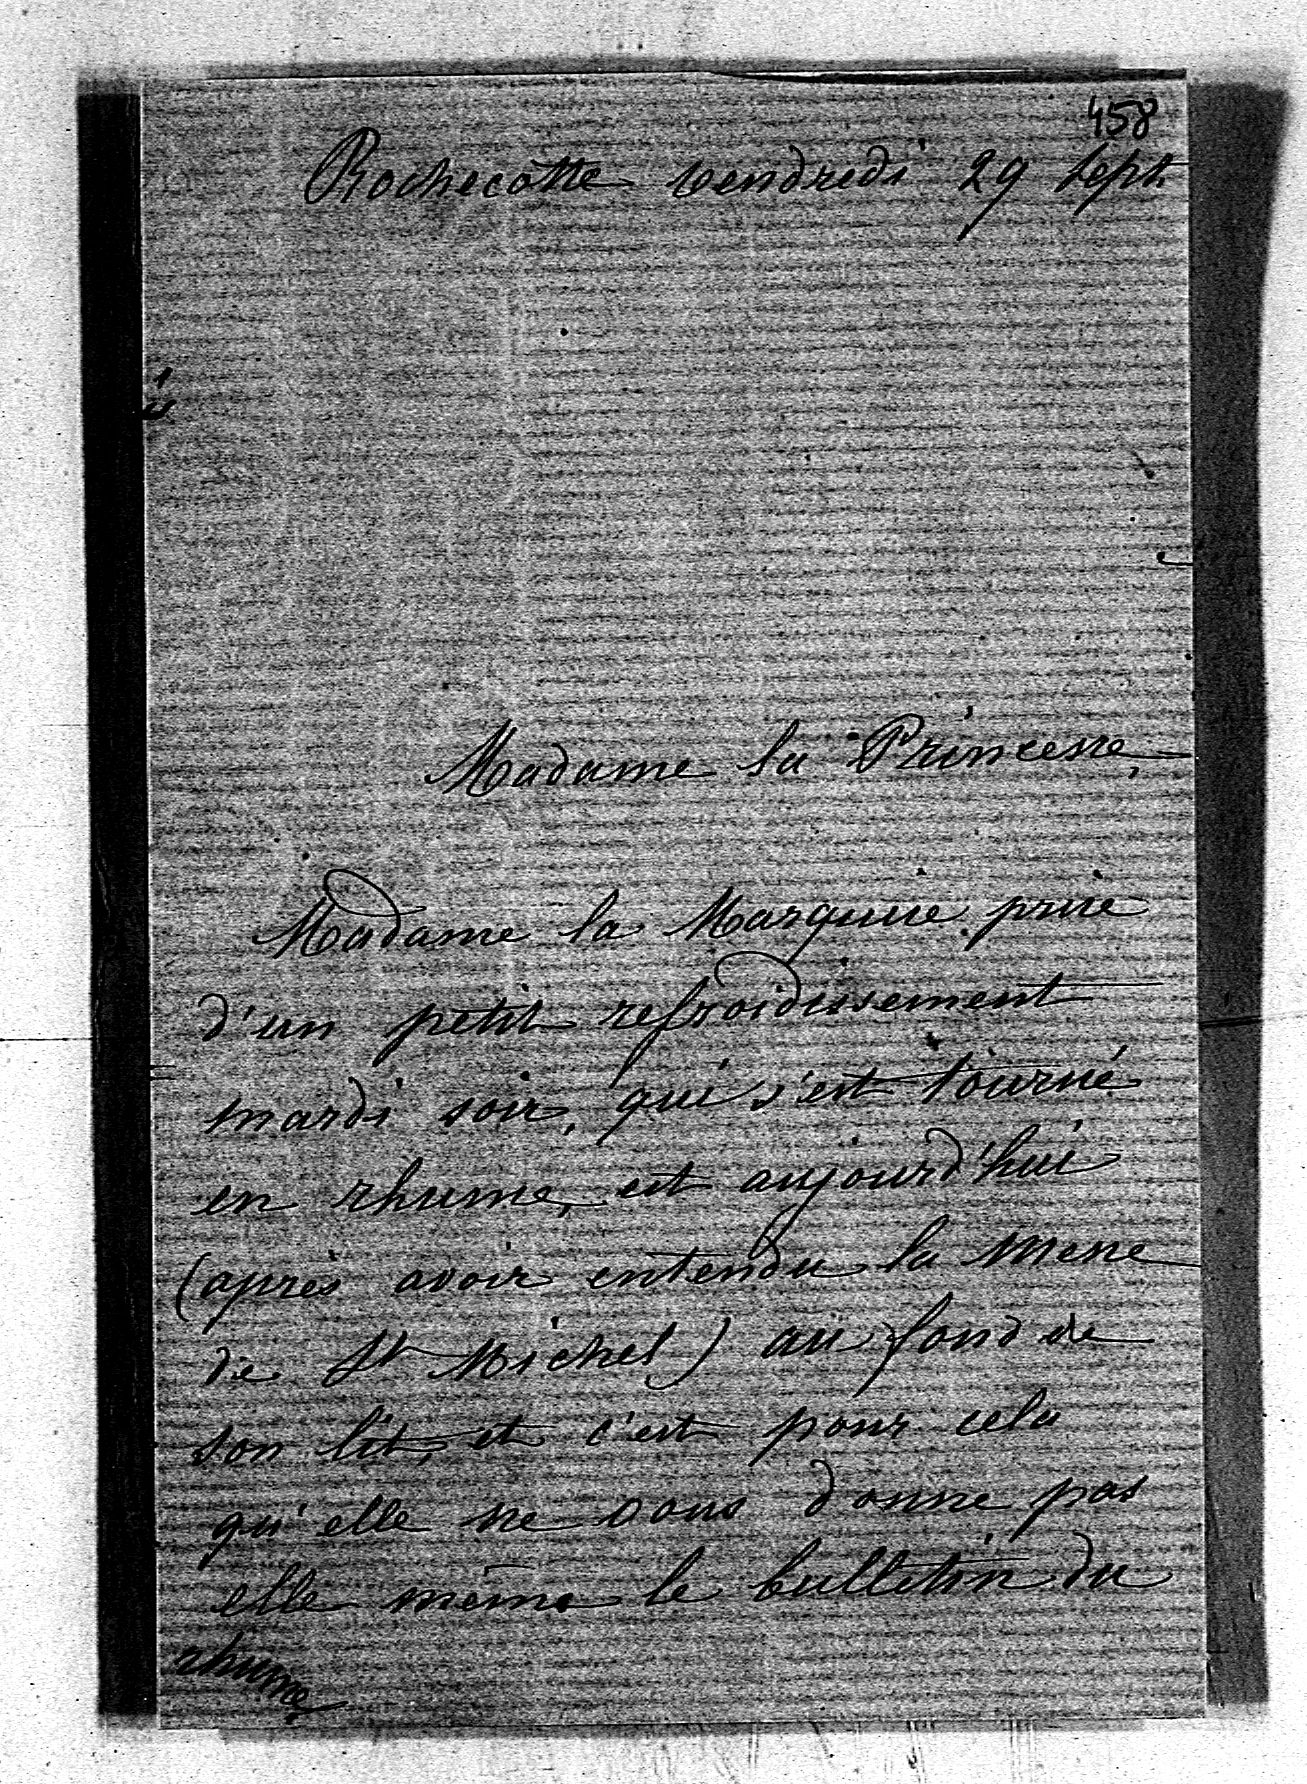 458
Rochecotte vendredi 29 Sept.
Madame la Princesse,
Madame la Marquise prise
d'un petit refroidissement
mardi soir, qui s'est tourné
en rhume, est aujourd'hui
(après avoir entendu la Messe
de St Michel) au fond de
son lit, et c'est pour cela
qu'elle ne vous donne pas
elle même le bulletin du
rhume